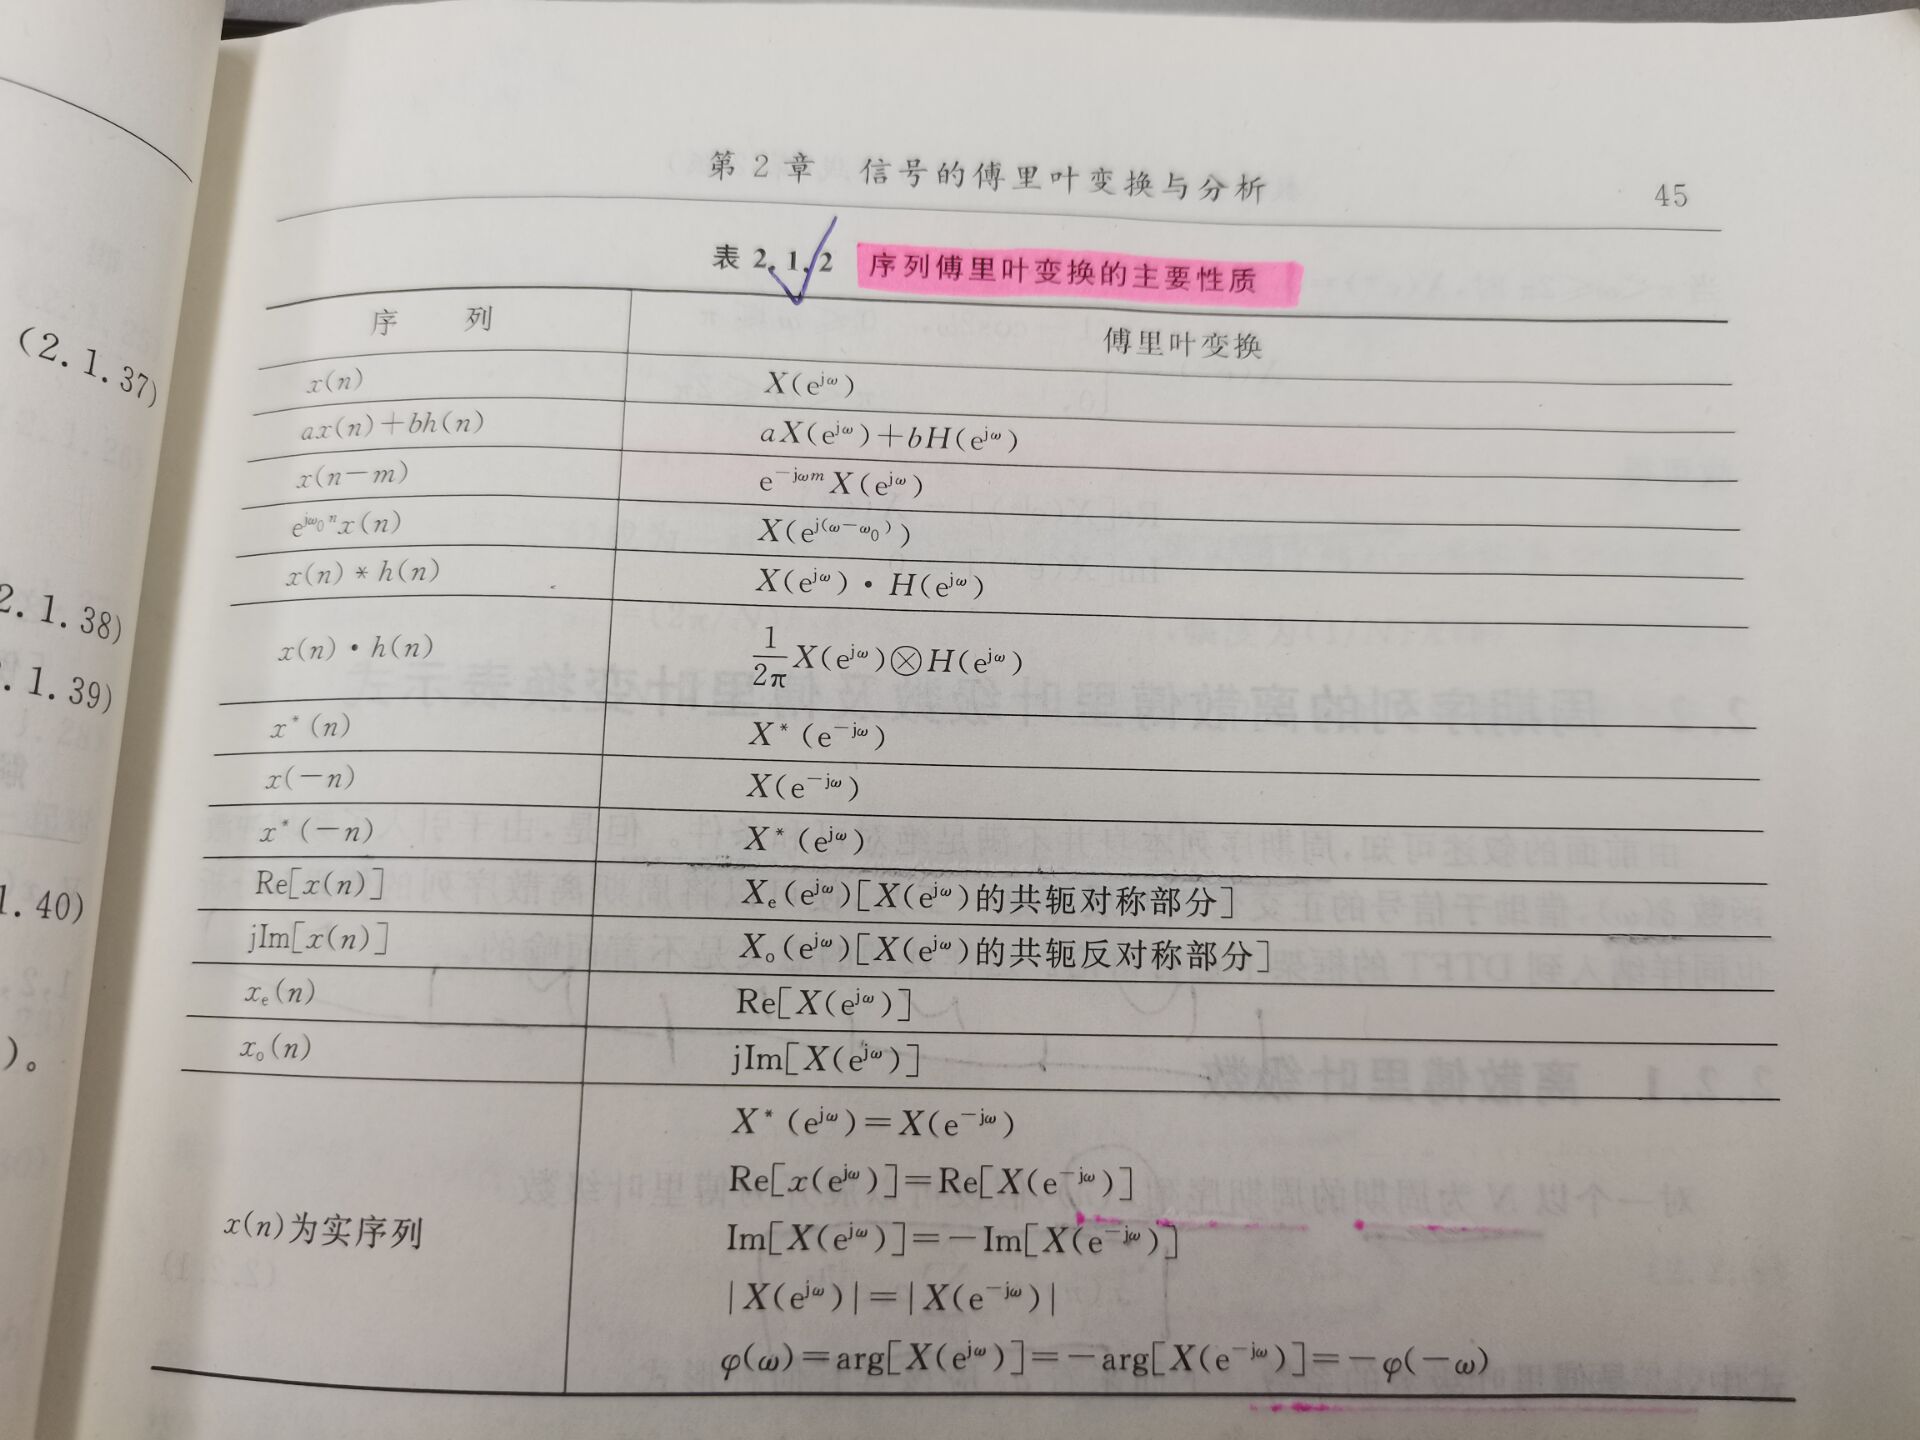 第 2 章 信号的傅里叶变换与分析 45
表 2.1.2 序列傅里叶变换的主要性质
序 列 傅里叶变换
x(n) X(e^{jω})
ax(n)+bh(n) aX(e^{jω})+bH(e^{jω})
x(n−m) e^{−jωm}X(e^{jω})
e^{jω₀n}x(n) X(e^{j(ω−ω₀)})
x(n)*h(n) X(e^{jω})·H(e^{jω})
x(n)·h(n) \frac{1}{2π}X(e^{jω})⊗H(e^{jω})
x*(n) X*(e^{−jω})
x(−n) X(e^{−jω})
x*(−n) X*(e^{jω})
Re[x(n)] Xₑ(e^{jω})[X(e^{jω})的共轭对称部分]
jIm[x(n)] Xₒ(e^{jω})[X(e^{jω})的共轭反对称部分]
xₑ(n) Re[X(e^{jω})]
xₒ(n) jIm[X(e^{jω})]
X*(e^{jω})=X(e^{−jω})
Re[x(e^{jω})]=Re[X(e^{−jω})]
x(n)为实序列 Im[X(e^{jω})]=−Im[X(e^{−jω})]
|X(e^{jω})|=|X(e^{−jω})|
φ(ω)=arg[X(e^{jω})]=−arg[X(e^{−jω})]=−φ(−ω)
(2.1.37)
2.1.38)
.1.39)
1.40)
)。